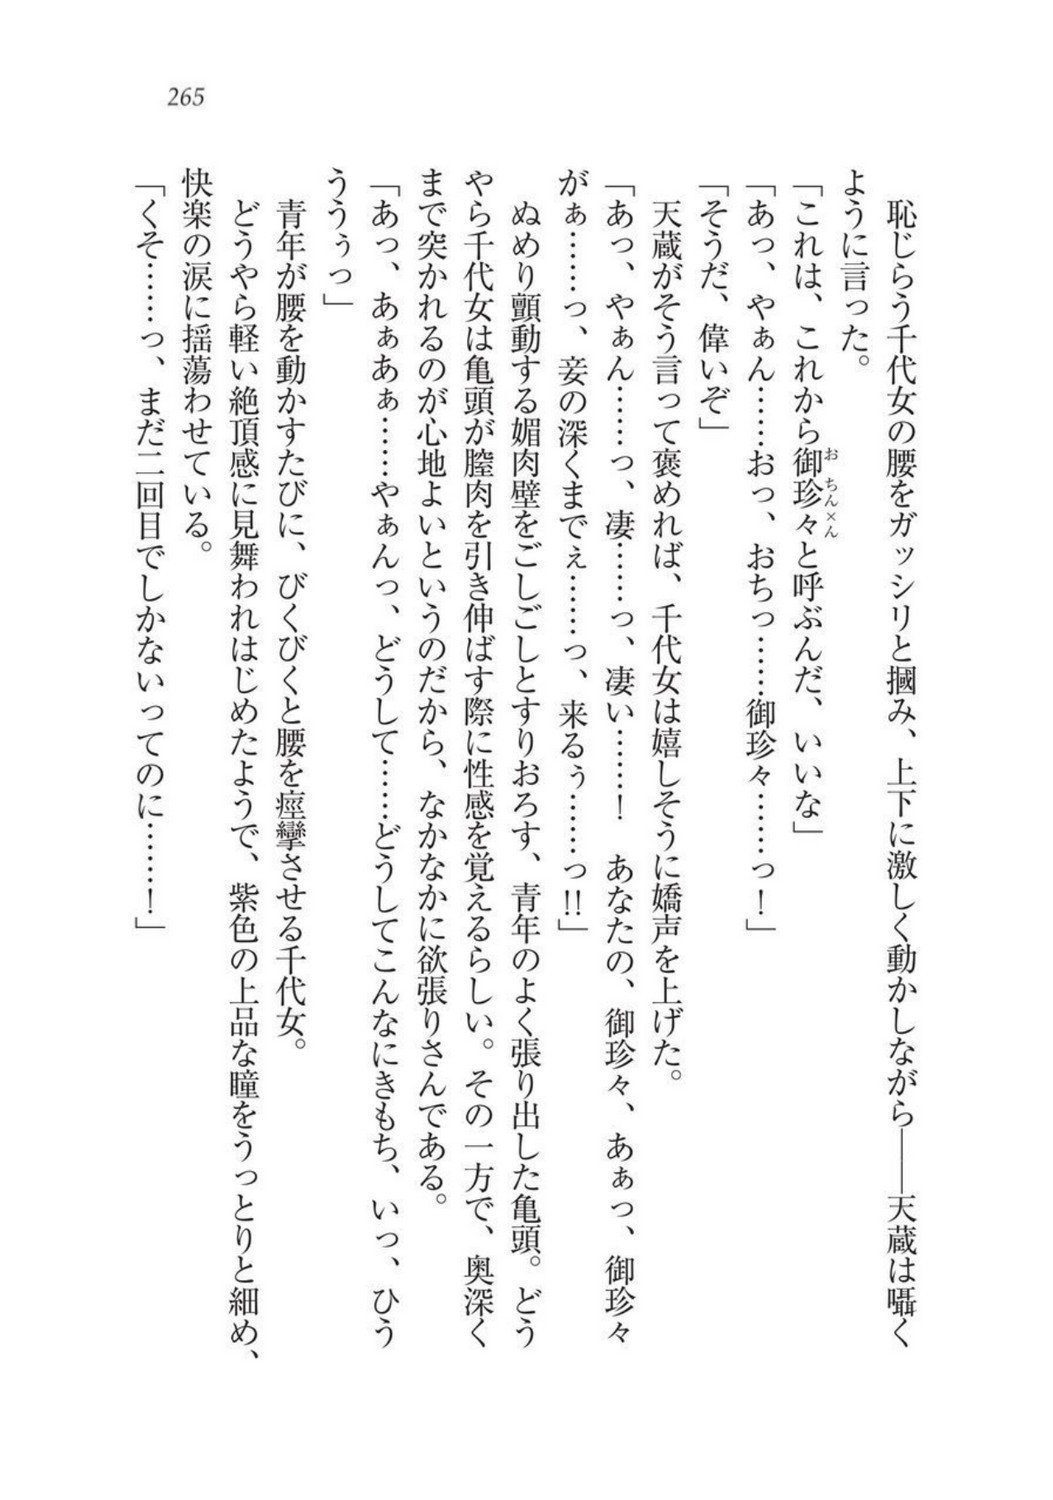 265
恥じらう千代女の腰をガッシリと摑み、上下に激しく動かしながら――天蔵は囁く
ように言った。
「これは、これから御珍々と呼ぶんだ、いいな」
おちん×ん
「あっ、やぁん……おっ、おちっ……御珍々……っ！」
「そうだ、偉いぞ」
天蔵がそう言って褒めれば、千代女は嬉しそうに嬌声を上げた。
「あっ、やぁん……っ、凄……っ、凄い……！　あなたの、御珍々、あぁっ、御珍々
がぁ……っ、妾の深くまでぇ……っ、来るぅ……っ!!」
ぬめり顫動する媚肉壁をごしごしとすりおろす、青年のよく張り出した亀頭。どう
やら千代女は亀頭が膣肉を引き伸ばす際に性感を覚えるらしい。その一方で、奥深く
まで突かれるのが心地よいというのだから、なかなかに欲張りさんである。
「あっ、あぁあぁ……やぁんっ、どうして……どうしてこんなにきもち、いっ、ひう
ううぅっ」
青年が腰を動かすたびに、びくびくと腰を痙攣させる千代女。
どうやら軽い絶頂感に見舞われはじめたようで、紫色の上品な瞳をうっとりと細め、
快楽の涙に揺蕩わせている。
「くそ……っ、まだ二回目でしかないってのに……！」